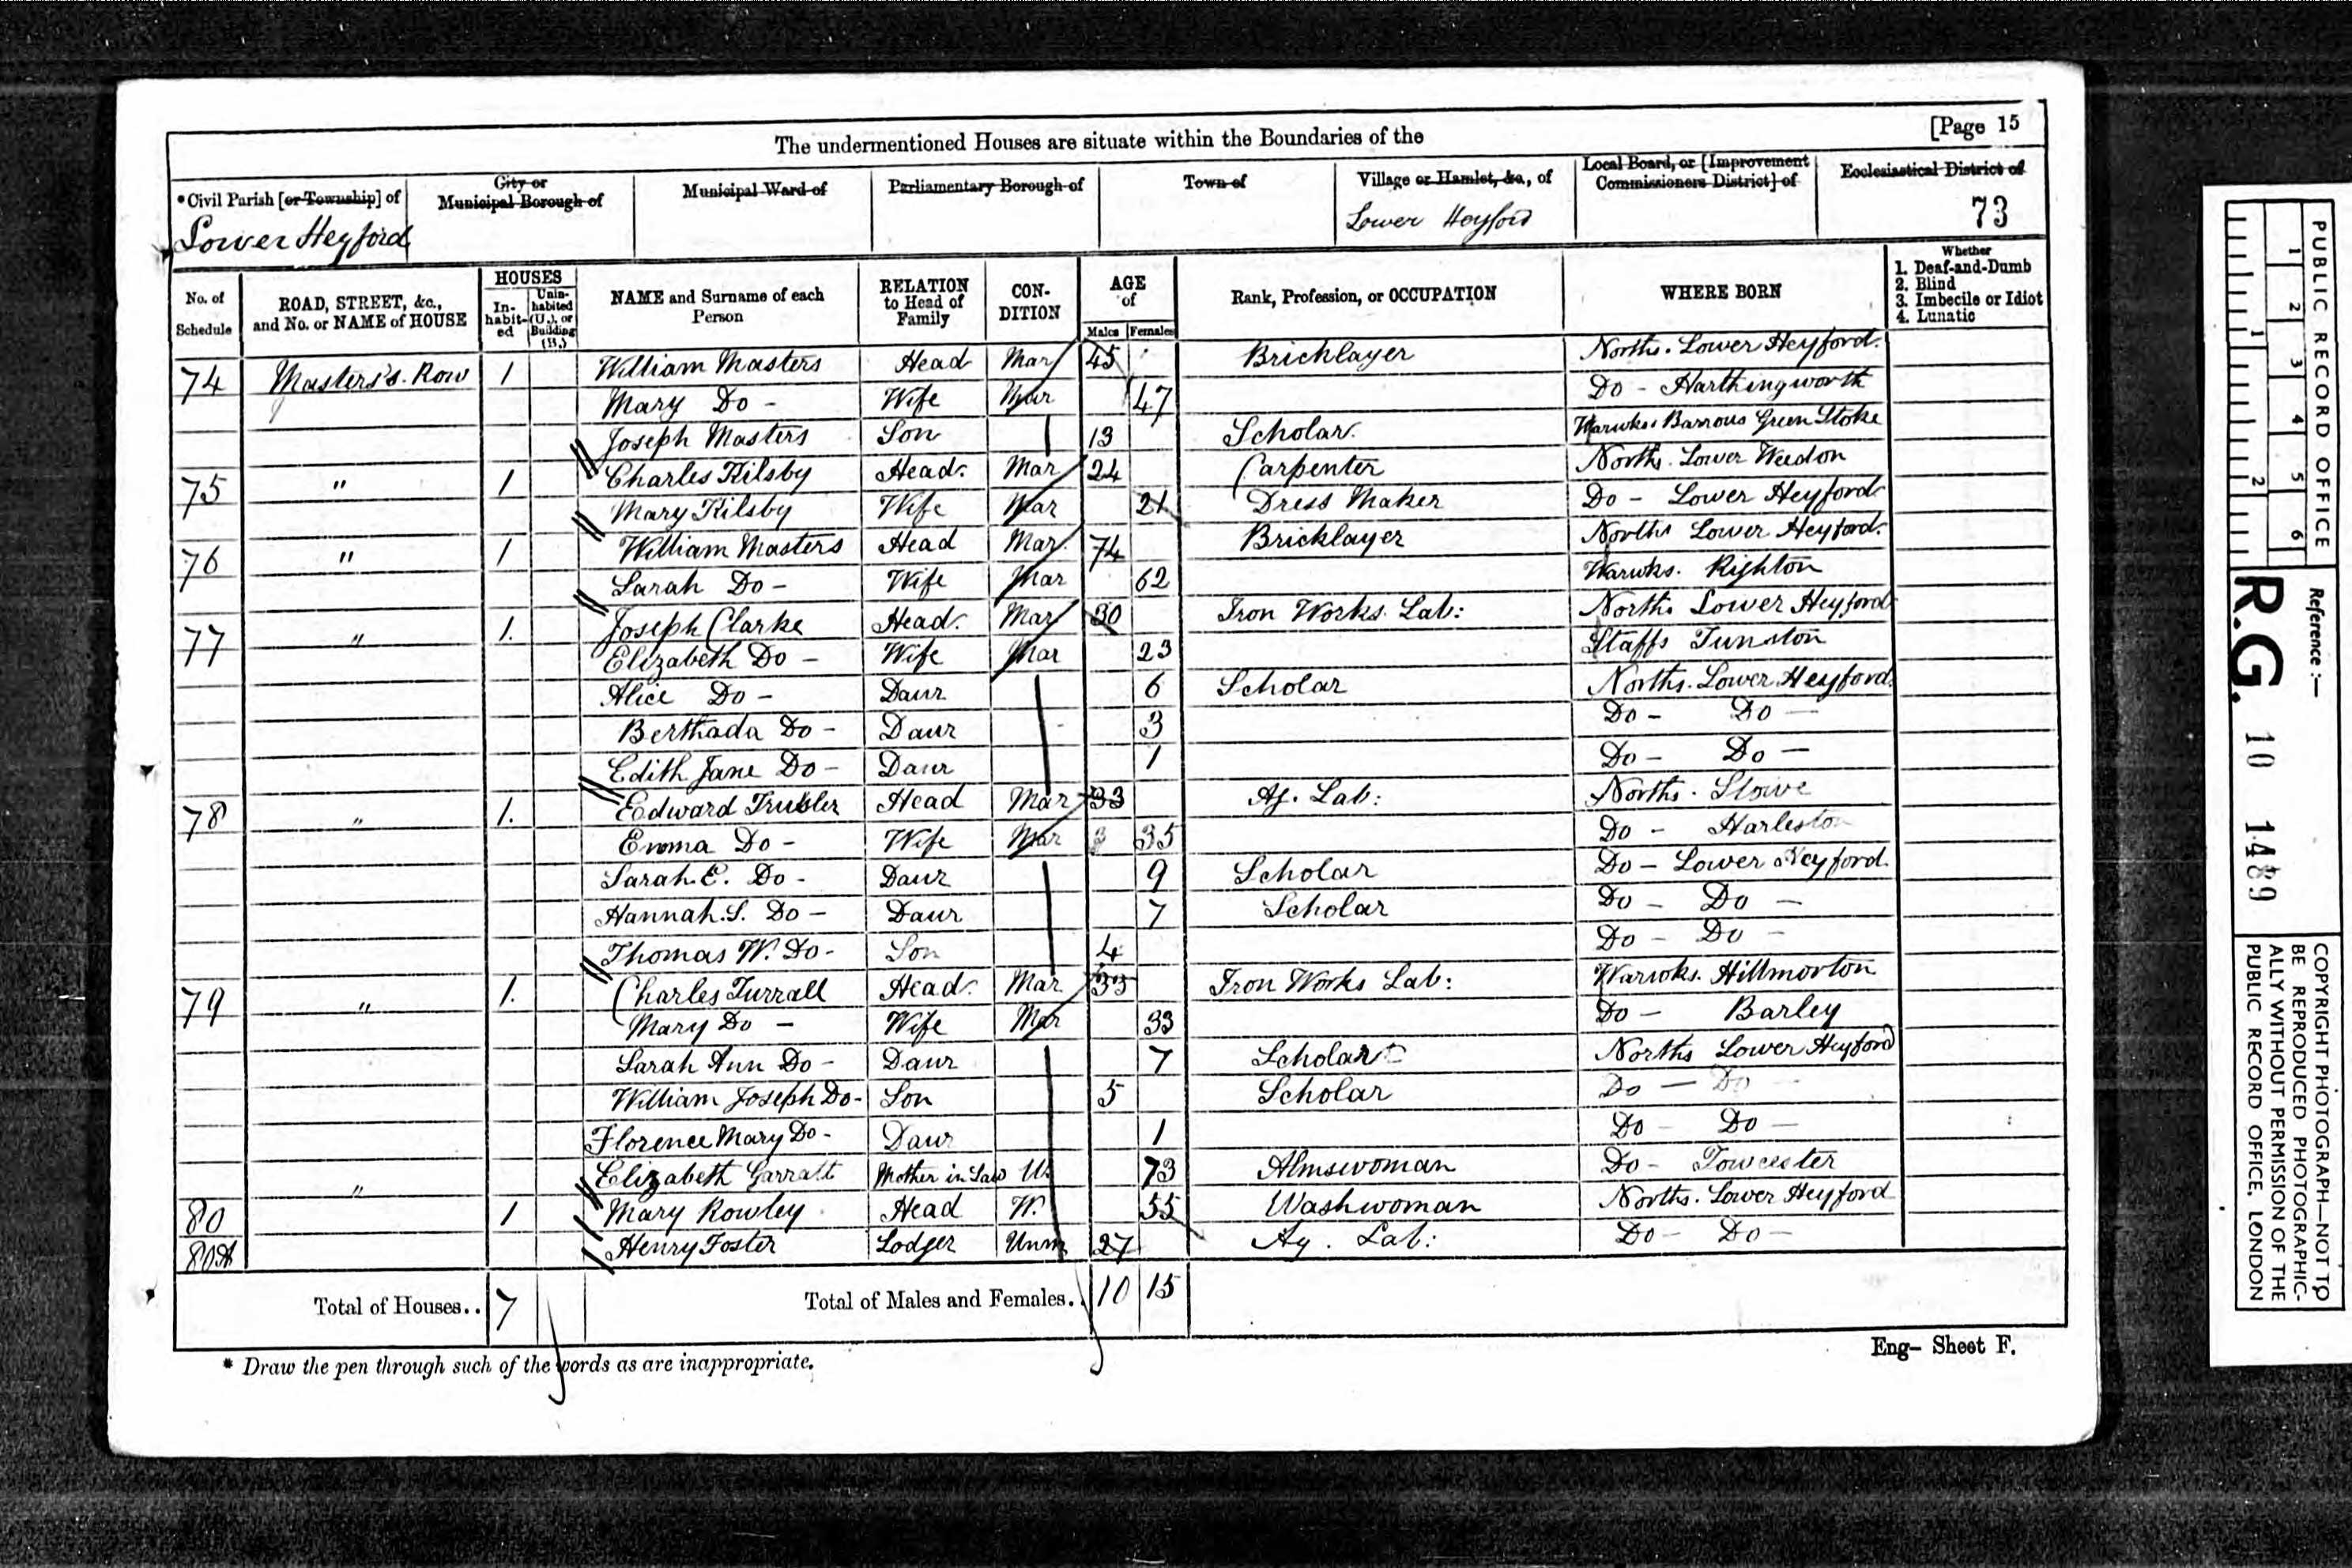 [Page 15
The undermentioned Houses are situate within the Boundaries of the
*Civil Parish [or Township] of
Lower Heyford
City or
Municipal Borough of
Municipal Ward of
Parliamentary Borough of
Town of
Village or Hamlet, &c., of
Lower Heyford
Local Board, or [Improvement
Commissioners District] of
Ecclesiastical District of
73
No. of
Schedule
ROAD, STREET, &c.,
and No. or NAME of HOUSE
HOUSES
In-
habit-
ed
Unin-
habited
(U.), or
Building
(B.)
NAME and Surname of each
Person
RELATION
to Head of
Family
CON-
DITION
AGE
of
Males Females
Rank, Profession, or OCCUPATION
WHERE BORN
Whether
1. Deaf-and-Dumb
2. Blind
3. Imbecile or Idiot
4. Lunatic
74 Masters's Row 1 William Masters Head Mar 45 Bricklayer Norths. Lower Heyford.
Mary Do - Wife Mar 47 Do - Harthingworth
Joseph Masters Son 13 Scholar. Warwks. Barrous Green Stoke
75 " 1 Charles Kilsby Head. Mar 24 Carpenter Norths. Lower Weedon
Mary Kilsby Wife Mar 21 Dress Maker Do - Lower Heyford
76 " 1 William Masters Head Mar. 74 Bricklayer Norths Lower Heyford.
Sarah Do - Wife Mar 62 Warwks. Righton
77 " 1. Joseph Clarke Head. Mar 30 Iron Works. Lab: Norths Lower Heyford
Elizabeth Do - Wife Mar 23 Staffs Tunston
Alice Do - Daur 6 Scholar Norths. Lower Heyford.
Berthada Do - Daur 3 Do - Do -
Edith Jane Do - Daur 1 Do - Do -
78 " 1. Edward Head Mar 33 Ag. Lab: Norths. Stowe
Emma Do - Wife Mar 3 35 Do - Harleston
Sarah E. Do - Daur 9 Scholar Do - Lower Heyford.
Hannah. S. Do - Daur 7 Scholar Do - Do -
Thomas W. Do - Son 4 Do - Do -
79 " 1. Charles Turrall Head. Mar 33 Iron Works Lab: Warwks. Hillmorton
Mary Do - Wife Mar 33 Do - Barley
Sarah Ann Do - Daur 7 Scholar Norths Lower Heyford
William Joseph Do - Son 5 Scholar Do - Do -
Florence Mary Do - Daur 1 Do - Do -
" Elizabeth Garratt Mother in Law 73 Almswoman Do - Towcester
80 1 Mary Rowley Head W. 55 Washwoman Norths. Lower Heyford
80A Henry Foster Lodger Unm 27 Ag. Lab: Do - Do -
Total of Houses.. 7 Total of Males and Females.. 10 15
* Draw the pen through such of the words as are inappropriate.
Eng- Sheet F.
PUBLIC RECORD OFFICE
1 2 3 4 5 6
1 2
Reference :-
R.G. 10 1489
COPYRIGHT PHOTOGRAPH-NOT TO
BE REPRODUCED PHOTOGRAPHIC-
ALLY WITHOUT PERMISSION OF THE
PUBLIC RECORD OFFICE, LONDON